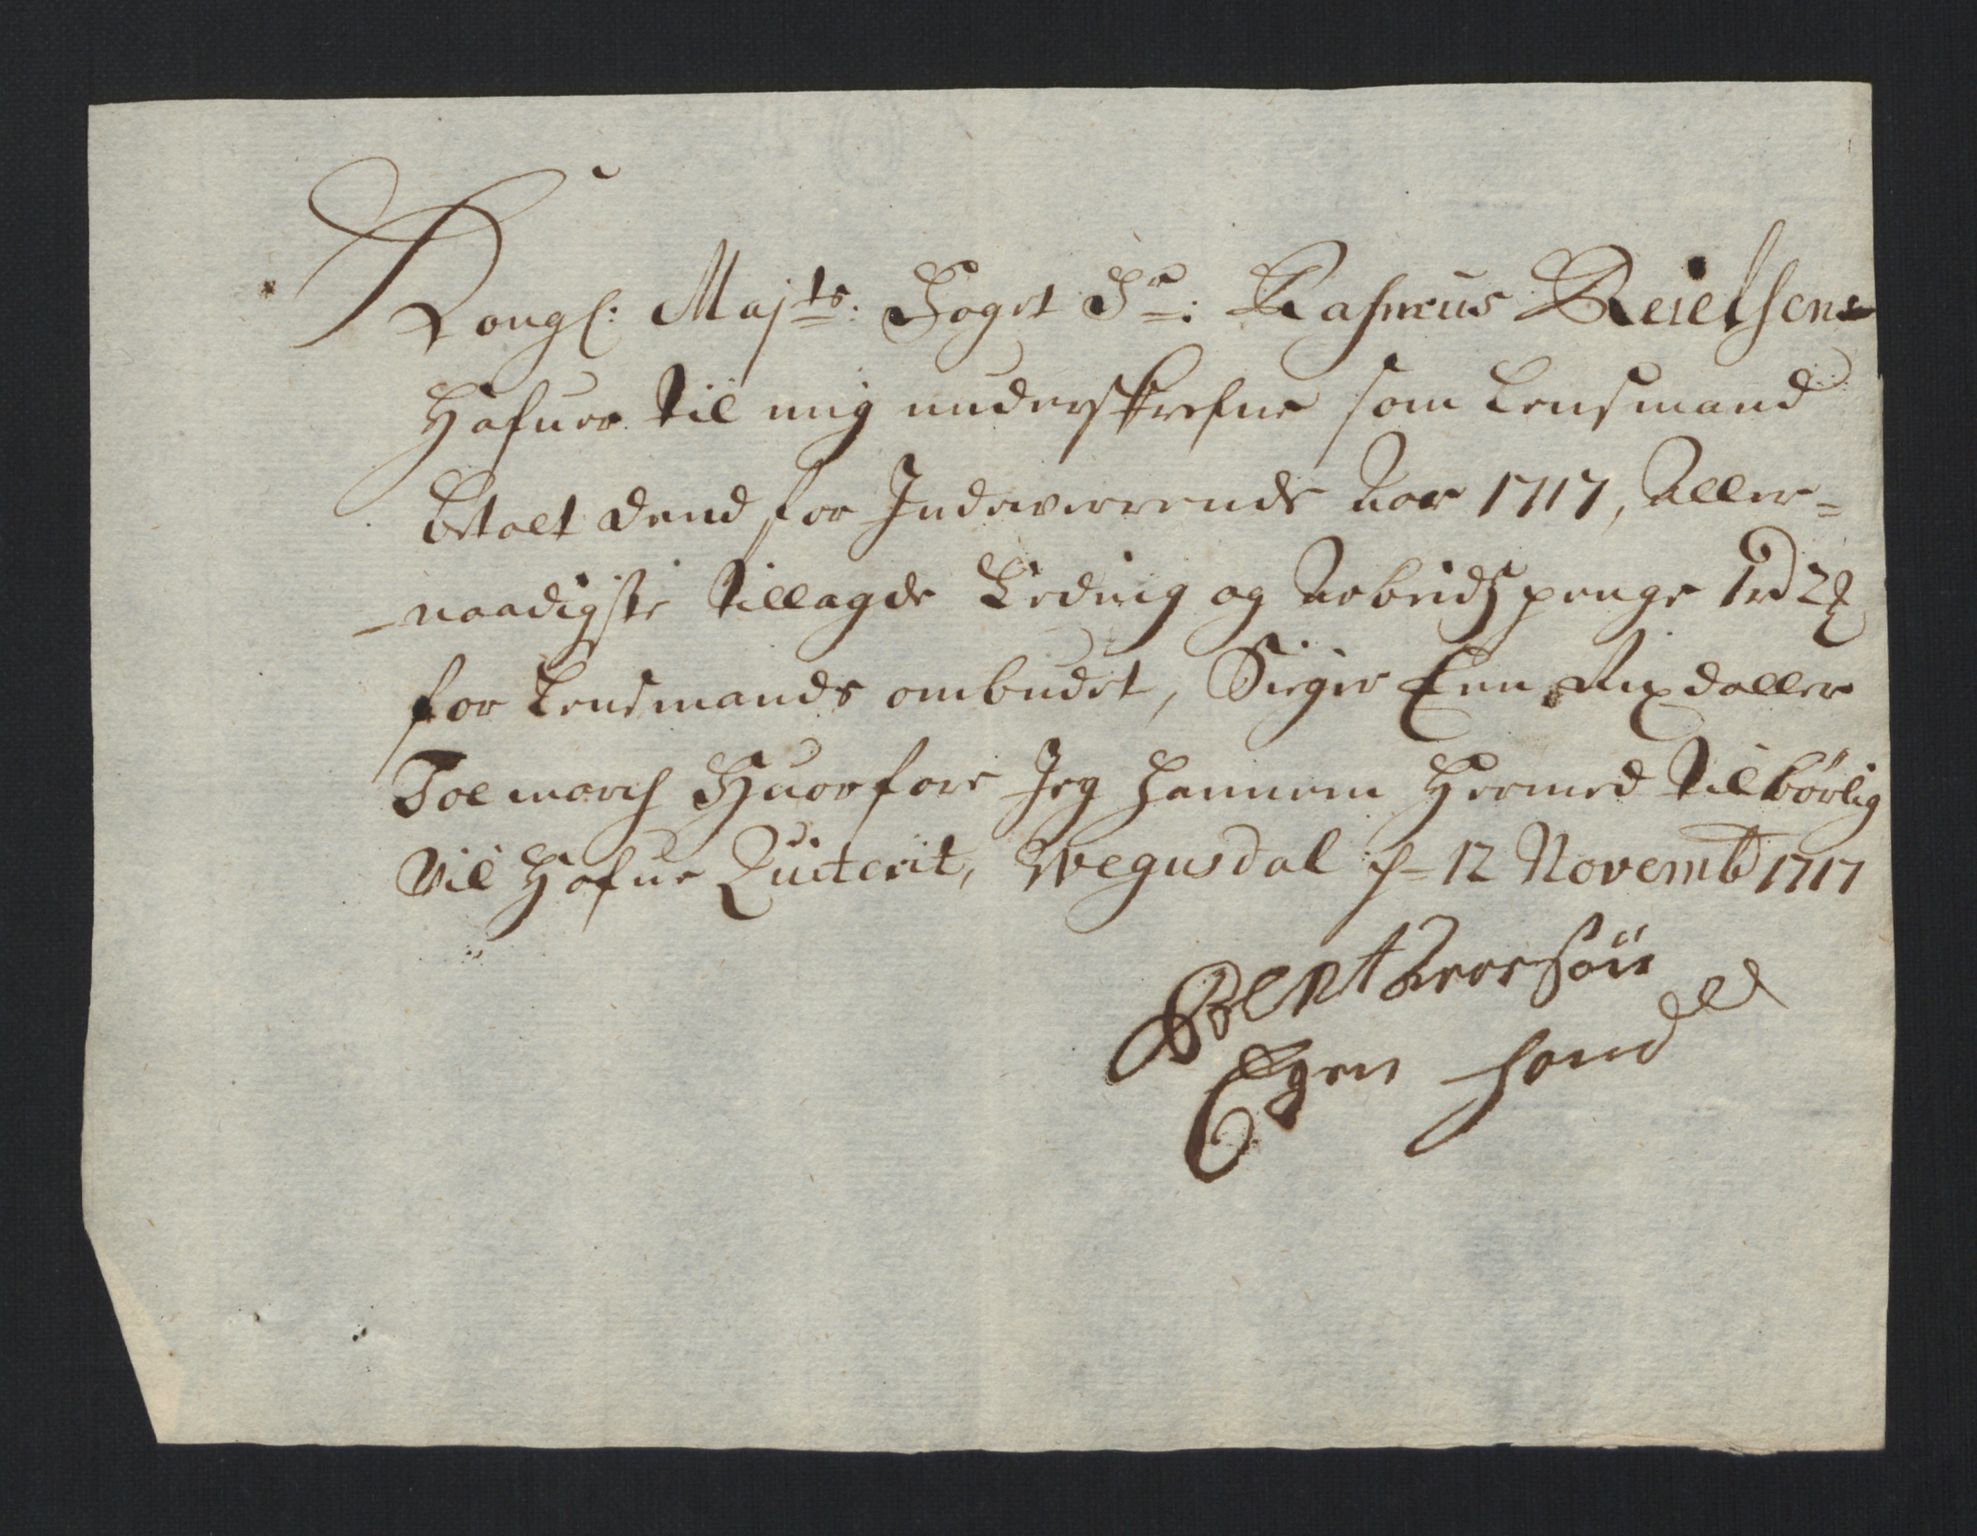 Kongl: Majts: Foget Sr: Rasmus Reiersen
Hafuer til mig underskrefne som Lensmand
betalt dend for Indeverrende Aar 1717, Aller=
naadigste tillagde Leding og Arbeidspenge 1 rd 2
for Lensmands ombudet, Siger Een Rixdaller
Toe march Huorfore Jeg hannem Hermed tilbørlig
vil Hafue Quiterit, Wegusdal d- 12 Novemb 1717
Bent
Egen haand